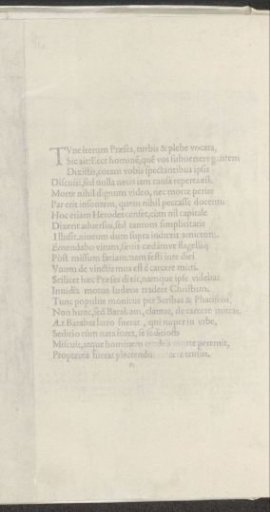 TVnc iterum Præses, turbis & plebe vocata,
Sic ait: Ecce hominē, quē vos subuertere gentem
Dixistis, coram vobis spectantibus ipse
Discussi, sed nulla neces iam causa reperta est.
Morte nihil dignum video, nec morte perire
Par erit insontem, quem nihil peccasse docenti
Hoc etiam Herodes censet, cum nil capitale
Dixerit aduersus, sed tantum simplicitate
Illusit, niueum dum supra induxit amictum.
Emendabo virum, sæuis cædamve flagellis,
Pòst missum faciam, nam festi iure diei
Vnum de vinctis mos est è carcere mitti.
Scilicet hæc Præses dixit, namque ipse videbat
Inuidia motos Iudæos tradere Christum.
Tunc populus monitus per Scribas & Phariseos,
Non hunc, sed Barabam, clamat, de carcere mittas.
At Barabas latro fuerat, qui nuper in vrbe,
Seditio cum nata foret, se seditiosis
Miscuit, atque hominem crudeli morte peremit,
Propterea fuerat plectendus